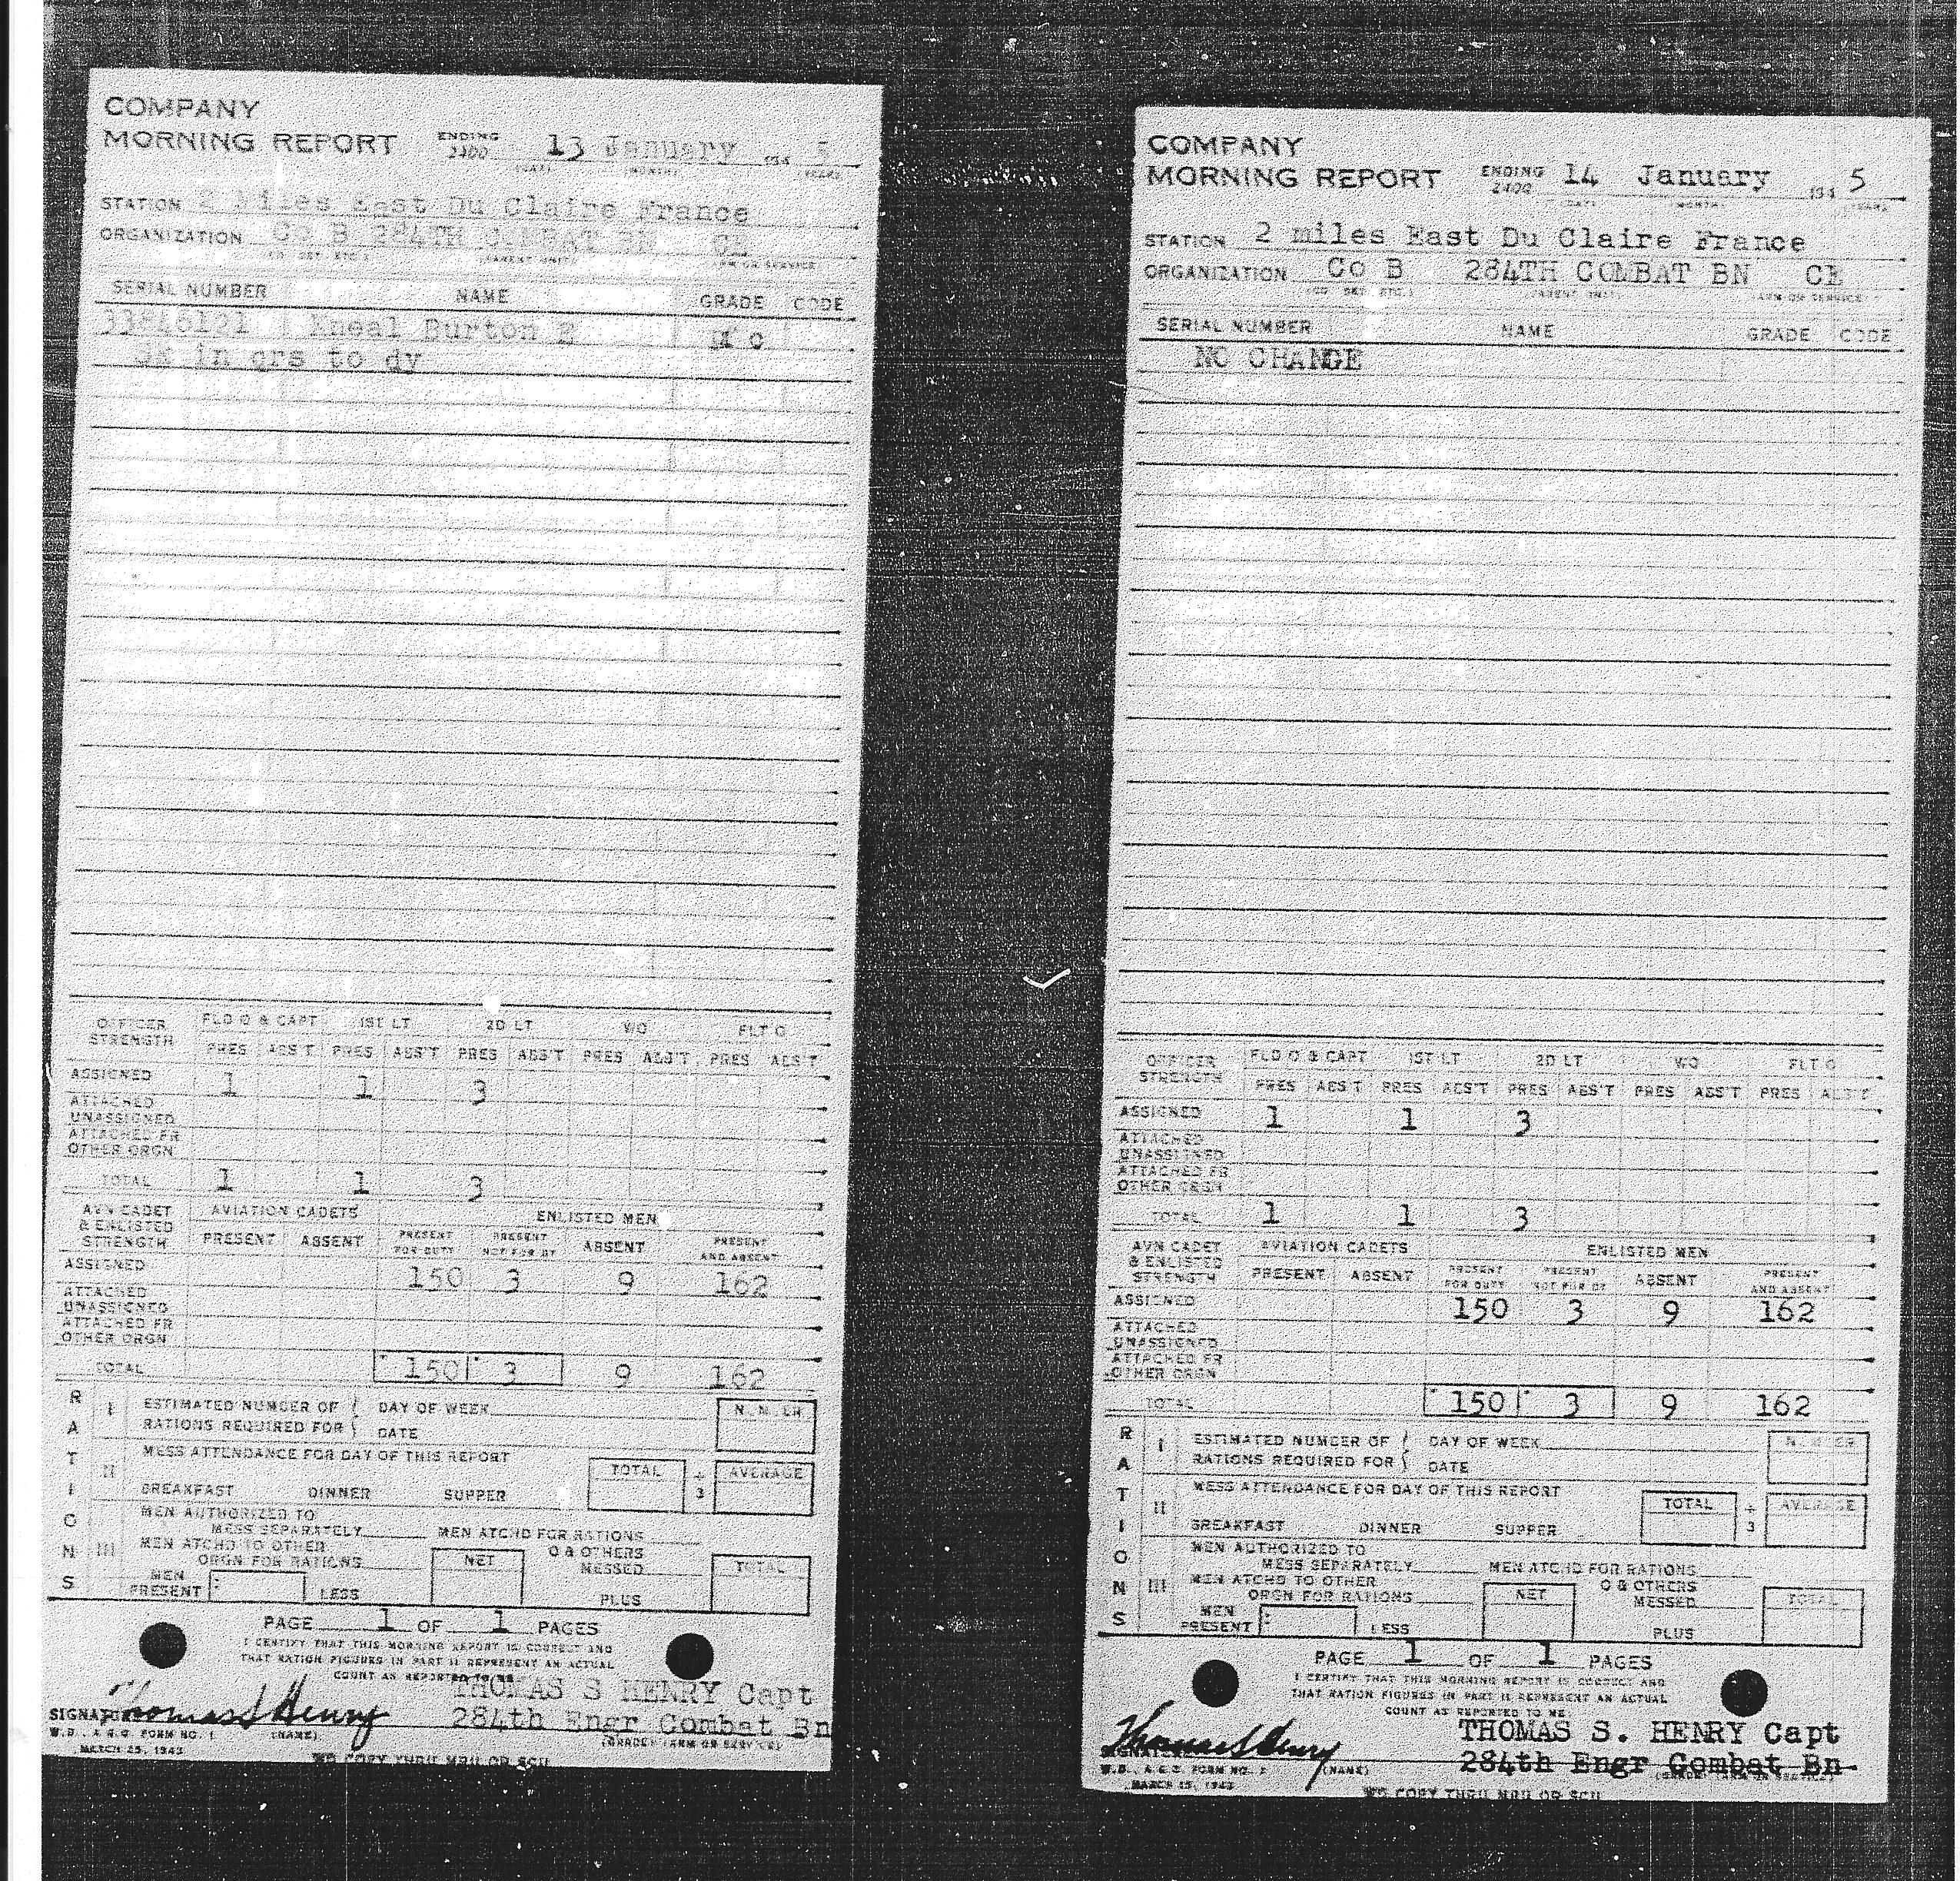 COMPANY
MORNING REPORT ENDING 2400 13 January 194 5
(DAY) (MONTH) (YEAR)
STATION 2 Miles East Du Claire France
ORGANIZATION Co B 284TH COMBAT BN CE
(CO. DET. ETC.) (PARENT UNIT) (ARM OR SERVICE)
SERIAL NUMBER NAME GRADE CODE
33846121 Kneal Burton E
Sk in qrs to dy
OFFICER STRENGTH FLD O & CAPT 1ST LT 2D LT WO FLT O
PRES ABS'T PRES ABS'T PRES ABS'T PRES ABS'T PRES ABS'T
ASSIGNED 1 1 3
ATTACHED UNASSIGNED
ATTACHED FR OTHER ORGN
TOTAL 1 1 3
AVN CADET & ENLISTED STRENGTH AVIATION CADETS ENLISTED MEN
PRESENT ABSENT PRESENT FOR DUTY PRESENT NOT FOR DY ABSENT PRESENT AND ABSENT
ASSIGNED 150 3 9 162
ATTACHED UNASSIGNED
ATTACHED FR OTHER ORGN
TOTAL 150 3 9 162
RATIONS
I ESTIMATED NUMBER OF DAY OF WEEK NUMBER
RATIONS REQUIRED FOR DATE
II MESS ATTENDANCE FOR DAY OF THIS REPORT TOTAL ÷ 3 AVERAGE
BREAKFAST DINNER SUPPER
III MEN AUTHORIZED TO
MESS SEPARATELY MEN ATCHD FOR RATIONS
MEN ATCHD TO OTHER O & OTHERS
ORGN FOR RATIONS NET MESSED TOTAL
MEN PRESENT LESS PLUS
PAGE 1 OF 1 PAGES
I CERTIFY THAT THIS MORNING REPORT IS CORRECT AND
THAT RATION FIGURES IN PART II REPRESENT AN ACTUAL
COUNT AS REPORTED TO ME
THOMAS S HENRY Capt
SIGNATURE Thomas S Henry 284th Engr Combat Bn
W.D., A.G.O. FORM NO. 1 (NAME) (GRADE) (ARM OR SERVICE)
MARCH 25, 1943
WD COPY THRU MRU OR SCU
COMPANY
MORNING REPORT ENDING 2400 14 January 194 5
(DAY) (MONTH) (YEAR)
STATION 2 miles East Du Claire France
ORGANIZATION Co B 284TH COMBAT BN CE
(CO. DET. ETC.) (PARENT UNIT) (ARM OR SERVICE)
SERIAL NUMBER NAME GRADE CODE
NO CHANGE
OFFICER STRENGTH FLD O & CAPT 1ST LT 2D LT WO FLT O
PRES ABS'T PRES ABS'T PRES ABS'T PRES ABS'T PRES ABS'T
ASSIGNED 1 1 3
ATTACHED UNASSIGNED
ATTACHED FR OTHER ORGN
TOTAL 1 1 3
AVN CADET & ENLISTED STRENGTH AVIATION CADETS ENLISTED MEN
PRESENT ABSENT PRESENT FOR DUTY PRESENT NOT FOR DY ABSENT PRESENT AND ABSENT
ASSIGNED 150 3 9 162
ATTACHED UNASSIGNED
ATTACHED FR OTHER ORGN
TOTAL 150 3 9 162
RATIONS
I ESTIMATED NUMBER OF DAY OF WEEK NUMBER
RATIONS REQUIRED FOR DATE
II MESS ATTENDANCE FOR DAY OF THIS REPORT TOTAL ÷ 3 AVERAGE
BREAKFAST DINNER SUPPER
III MEN AUTHORIZED TO
MESS SEPARATELY MEN ATCHD FOR RATIONS
MEN ATCHD TO OTHER O & OTHERS
ORGN FOR RATIONS NET MESSED TOTAL
MEN PRESENT LESS PLUS
PAGE 1 OF 1 PAGES
I CERTIFY THAT THIS MORNING REPORT IS CORRECT AND
THAT RATION FIGURES IN PART II REPRESENT AN ACTUAL
COUNT AS REPORTED TO ME
THOMAS S. HENRY Capt
SIGNATURE Thomas S Henry 284th Engr Combat Bn
W.D., A.G.O. FORM NO. 1 (NAME) (GRADE) (ARM OR SERVICE)
MARCH 25, 1943
WD COPY THRU MRU OR SCU